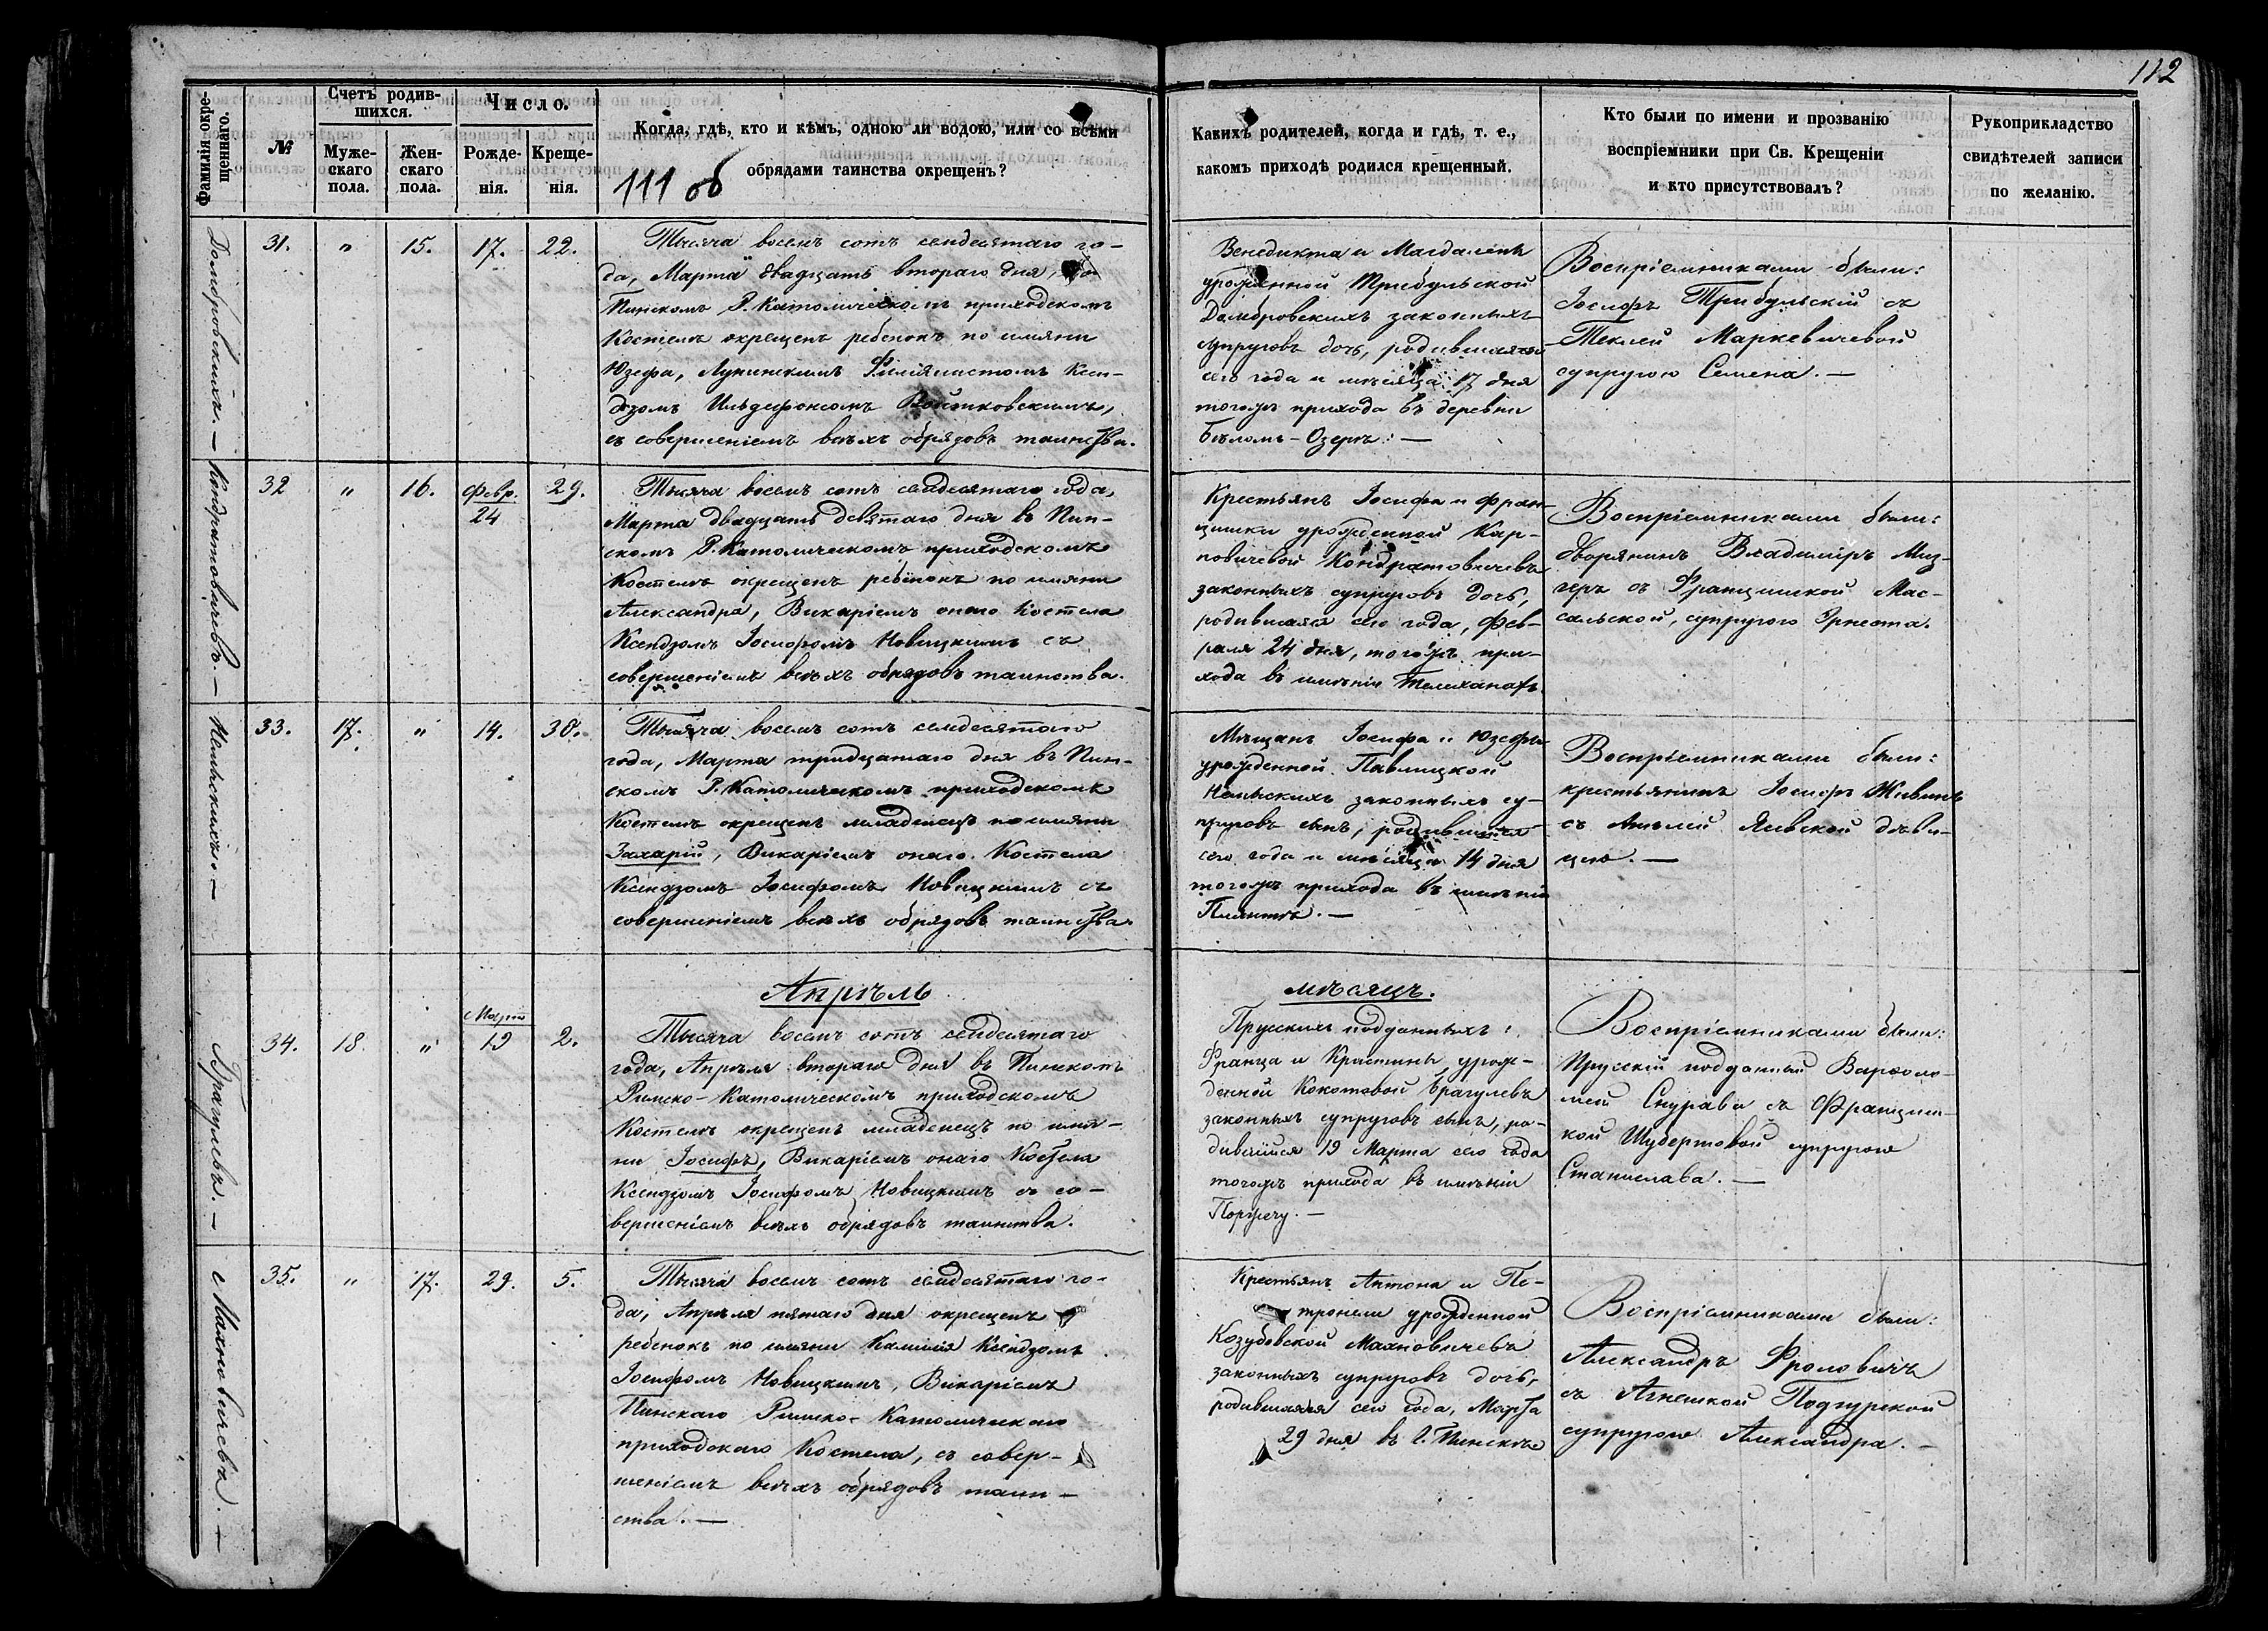 112
Фамилія окре-
щеннаго.
№
Счетъ родив-
шихся.
Муже-
скаго
пола.
Жен-
скаго
пола.
Число.
Рожде-
нія.
Креще-
нія.
Когда, гдѣ, кто и кѣмъ, одною ли водою, или со всѣми
обрядами таинства окрещенъ?
111 об
Какихъ родителей, когда и гдѣ, т. е.,
какомъ приходѣ родился крещенный.
Кто были по имени и прозванію
воспріемники при Св. Крещеніи
и кто присутствовалъ?
Рукоприкладство
свидѣтелей записи
по желанію.
Домбровскихъ. —
31.
"
15.
17.
22.
Тысяча восемъ сотъ семдесятаго го-
да, Марта двадцать втораго дня, во
Пинскомъ Р. Католическомъ приходскомъ
Костелѣ окрещенъ ребенокъ по имяни
Юзефа, Лунинскимъ Филіялистомъ Ксен-
дзомъ Ильдефонсомъ Войтковскимъ,
съ совершеніемъ всѣхъ обрядовъ таинства.
Венедикта и Магдалены
урожденной Трибульской
Домбровскихъ законныхъ
супруговъ дочь, родившаяся
сего года и мѣсяца 17 дня
тогожъ прихода въ деревни
Бѣломъ-Озерѣ. —
Воспріемниками были:
Іосифъ Трибульскій съ
Теклей Маркевичевой
супругою Семена. —
Кондратовичевъ. —
32
"
16.
Февр.
24
29.
Тысяча восемъ сотъ семдесятаго года,
Марта двадцать девятаго дня въ Пин-
скомъ Р. Католическомъ приходскомъ
Костелѣ окрещенъ ребенокъ по имяни
Александра, Викаріемъ онаго Костела
Ксендзомъ Іосифомъ Новицкимъ съ
совершеніемъ всѣхъ обрядовъ таинства.
Крестьянъ Іосифа и Фран-
цишки урожденной Кар-
повичевой Кондратовичевъ
законныхъ супруговъ дочь,
родившаяся сего года, Фев-
раля 24 дня, тогожъ при-
хода въ имѣніи Телеханахъ.
Воспріемниками были:
дворянинъ Владиміръ Миз-
геръ съ Францишкой Мас-
сальской, супругою Эрнеста.
33.
17.
"
14.
30.
Тысяча восемъ сотъ семдесятаго
года, Марта тридцатаго дня въ Пин-
скомъ Р. Католическомъ приходскомъ
Костелѣ окрещенъ младенецъ по имяни
Захарій, Викаріемъ онаго Костела
Ксендзомъ Іосифомъ Новицкимъ съ
совершеніемъ всѣхъ обрядовъ таинства.
Мѣщанъ Іосифа и Юзефы
урожденной Павлицкой
законныхъ су-
пруговъ сынъ, родившійся
сего года и мѣсяца 14 дня
тогожъ прихода въ имѣніи
Воспріемниками были:
крестьянинъ Іосифъ
съ Анелей дѣви-
цею. —
Апрѣль
мѣсяцъ.
Брагулевъ. —
34.
18
"
Март
19
2.
Тысяча восемъ сотъ семдесятаго
года, Апрѣля втораго дня въ Пинскомъ
Римско-Католическомъ приходскомъ
Костелѣ окрещенъ младенецъ по имя-
ни Іосифъ, Викаріемъ онаго Костела
Ксендзомъ Іосифомъ Новицкимъ съ со-
вершеніемъ всѣхъ обрядовъ таинства.
Прусскихъ подданныхъ:
Франца и Кристины урож-
денной Кокотовой Брагулевъ
законныхъ супруговъ сынъ, ро-
дившійся 19 Марта сего года
тогожъ прихода въ имѣніи
Порѣчу. —
Воспріемниками были:
Прусскій подданный Варѳоло-
мей Снурава съ Францишкой
кой Шубертовой супругою
Станислава. —
Махновичевъ. —
35.
"
17.
29.
5.
Тысяча восемъ сотъ семдесятаго го-
да, Апрѣля пятаго дня окрещенъ
ребенокъ по имяни Камилія Ксендзомъ
Іосифомъ Новицкимъ, Викаріемъ
Пинскаго Римско-Католическаго
приходскаго Костела, съ совер-
шеніемъ всѣхъ обрядовъ таин-
ства. —
Крестьянъ Антона и Пе-
тронели урожденной
Козубовской Махновичевъ
законныхъ супруговъ дочь,
родившаяся сего года, Марта
29 дня въ г. Пинскѣ
Воспріемниками были:
Александръ Фроловичъ
съ Агнешкой Подгурской
супругою Александра. —